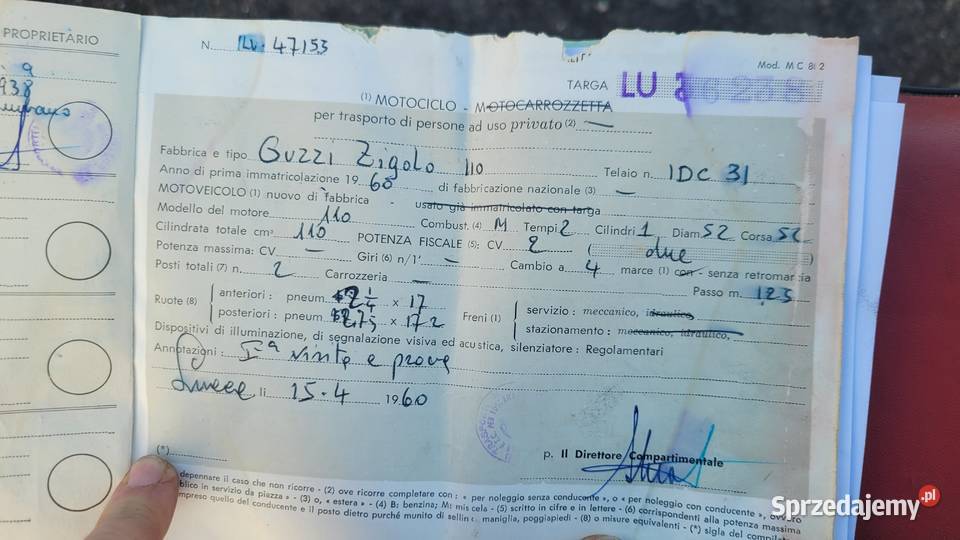 PROPRIETARIO
938
N. LU. 47153
Mod. M C 8 2
TARGA LU
(1) MOTOCICLO - MOTOCARROZZETTA
per trasporto di persone ad uso privato (2) —
Fabbrica e tipo Guzzi Zigolo 110 Telaio n. 1DC 31
Anno di prima immatricolazione 19 60 di fabbricazione nazionale (3) —
MOTOVEICOLO (1) nuovo di fabbrica - usato già immatricolato con targa
Modello del motore 110 Combust. (4) M Tempi 2 Cilindri 1 Diam 52 Corsa 52
Cilindrata totale cm³ 110 POTENZA FISCALE (5): CV 2 ( due )
Potenza massima: CV — Giri (6) n/1' — Cambio a 4 marce (1) con - senza retromarcia
Posti totali (7) n. 2 Carrozzeria — Passo m. 1,25
Ruote (8) anteriori: pneum. 2 1/4 x 17 Freni (1) servizio: meccanico, idraulico
posteriori: pneum. 2.75 x 17 stazionamento: meccanico, idraulico,
Dispositivi di illuminazione, di segnalazione visiva ed acustica, silenziatore: Regolamentari
Annotazioni: Iª visita e prova
Lucca li 15-4 1960
(*)
p. Il Direttore Compartimentale
depennare il caso che non ricorre - (2) ove ricorre completare con: « per noleggio senza conducente », o « per noleggio con conducente », ovvero
blico in servizio da piazza » - (3) o, « estera » - (4) B: benzina; M: miscela - (5) scritto in cifre e in lettere - (6) corrispondenti alla potenza massima
mpreso quello del conducente e il posto dietro purché munito di sellino, maniglia, poggiapiedi - (8) o misure equivalenti - (*) sigla del compilat
Sprzedajemy.pl